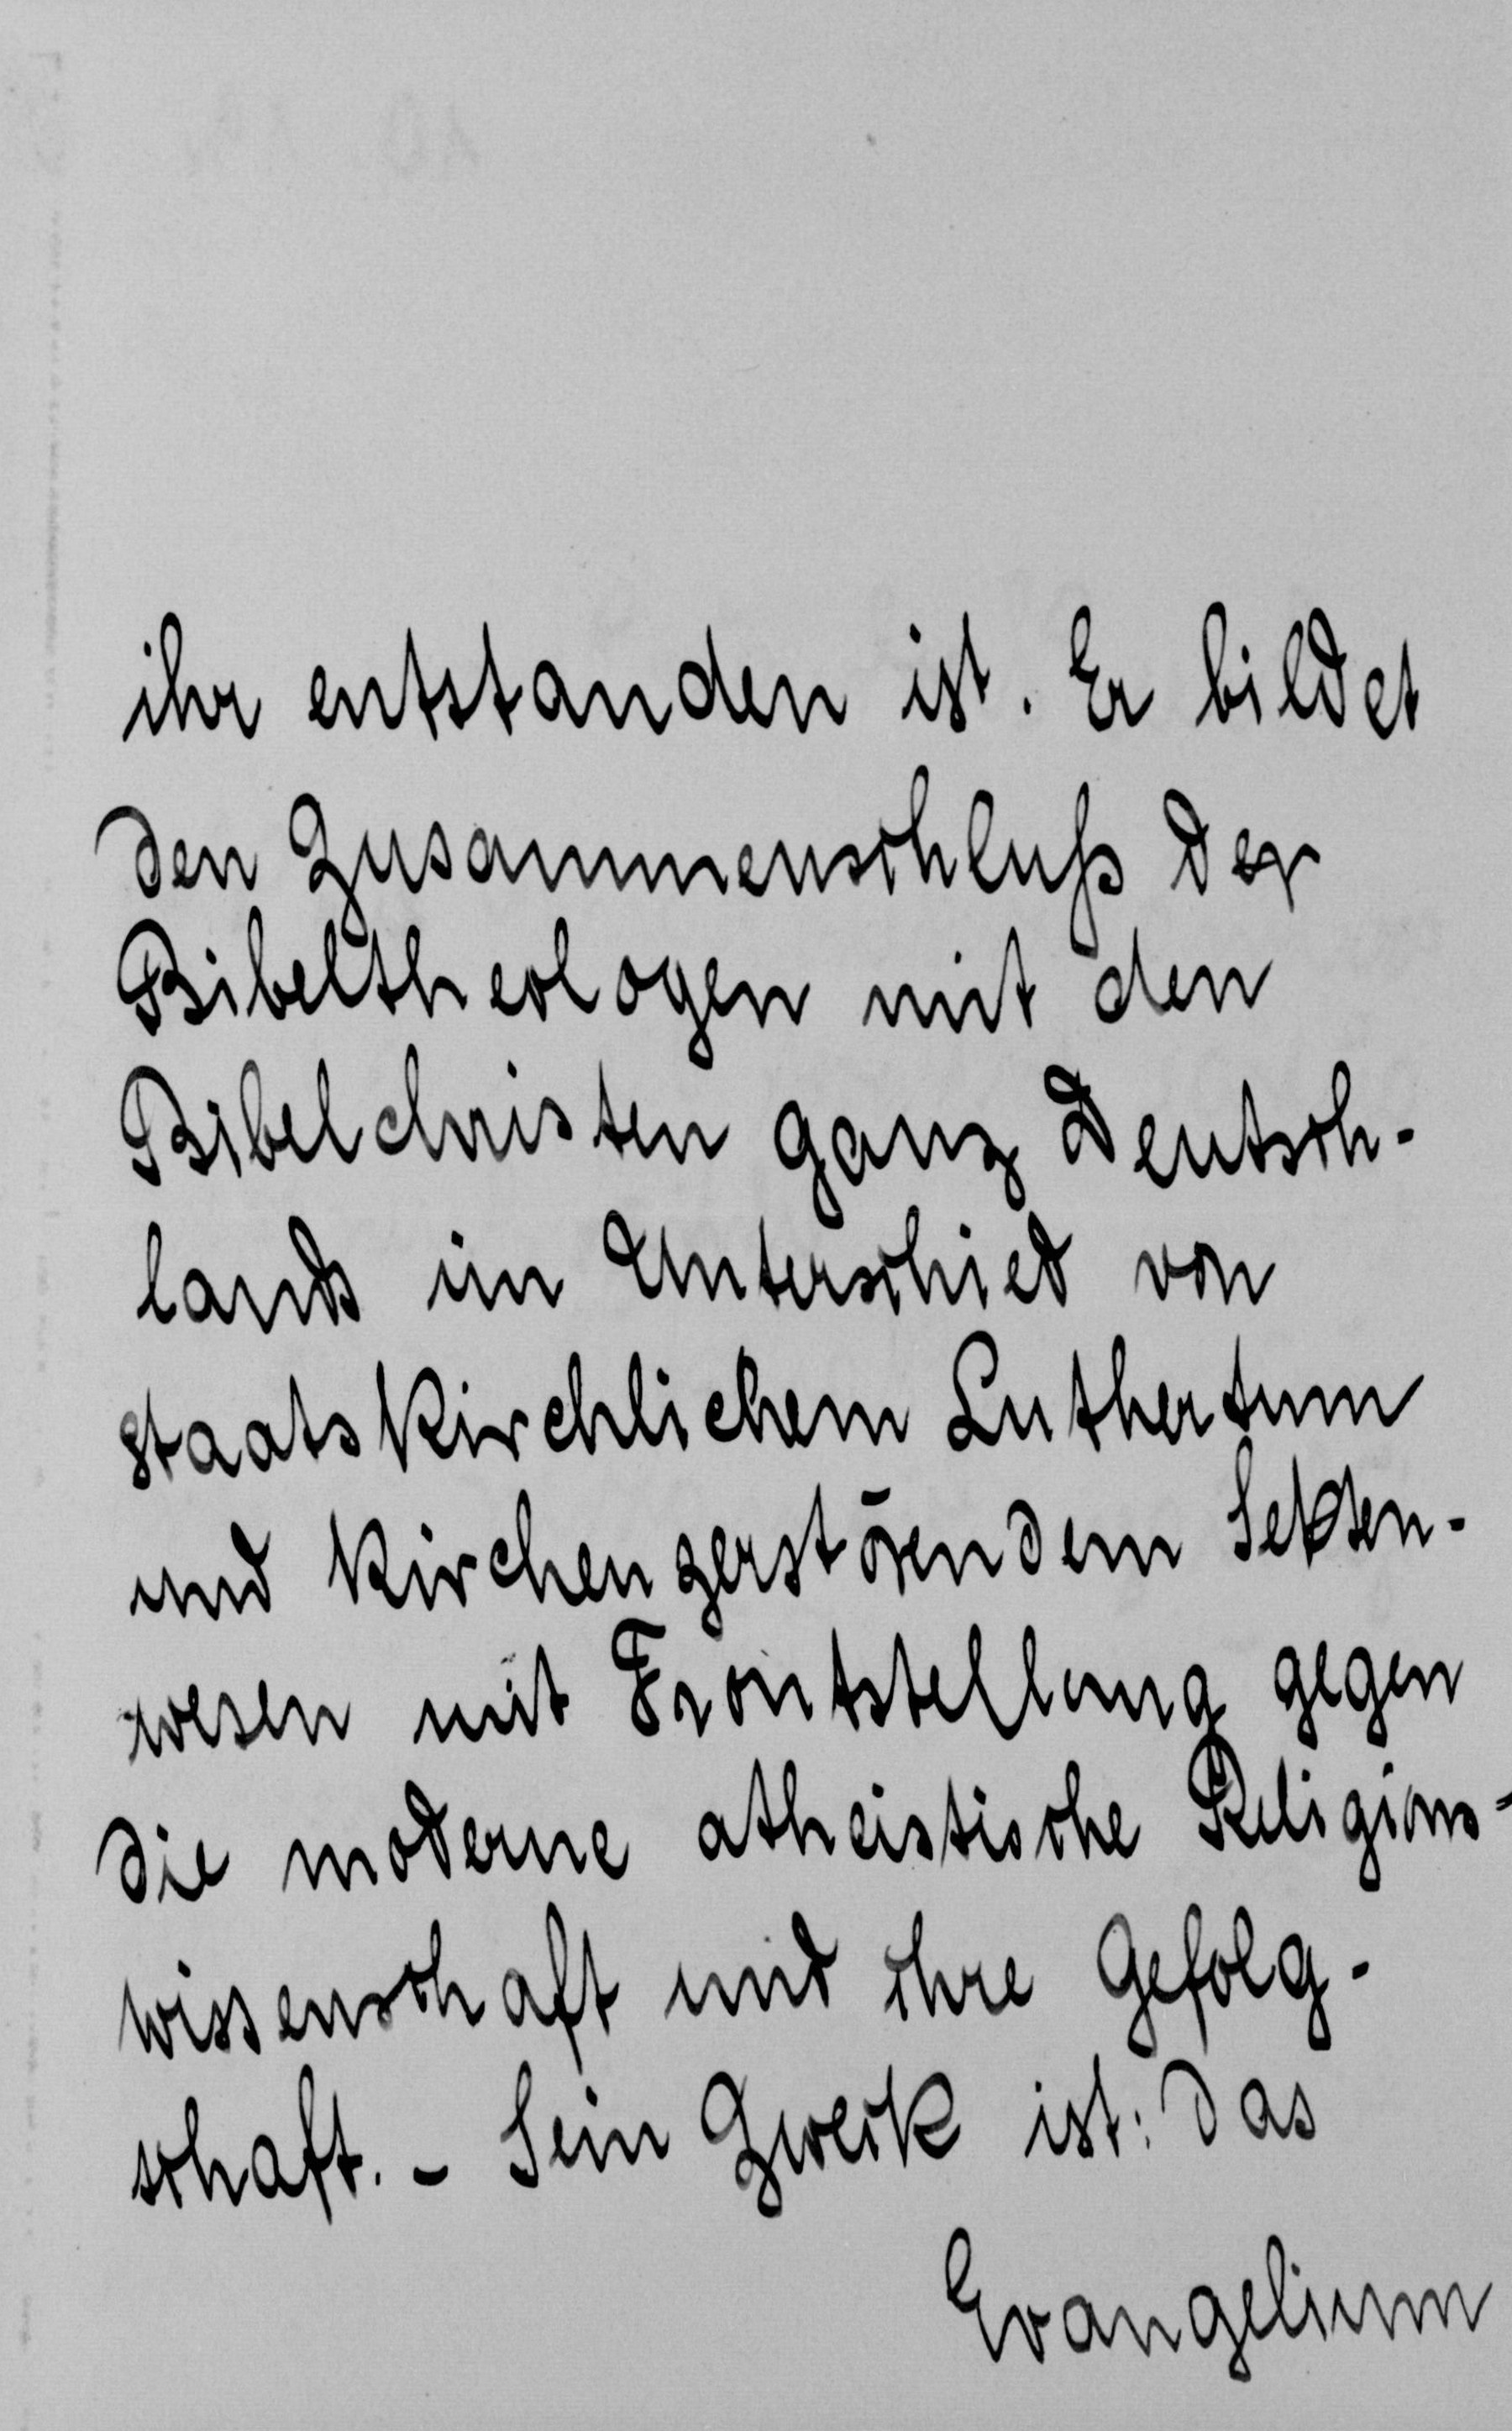 ihr entstanden ist. Er bildet
den Zusammenschluß der
Bibeltheologen mit den
Bibelchristen ganz Deutsch-
lands im Unterschied von
staatskirchlichem Luthertum
und kirchenzerstörendem Sekten-
wesen mit Frontstellung gegen
die moderne atheistische Religions-
wissenschaft und ihre Gefolg-
schaft. - Sein Zweck ist: das
Evangelium